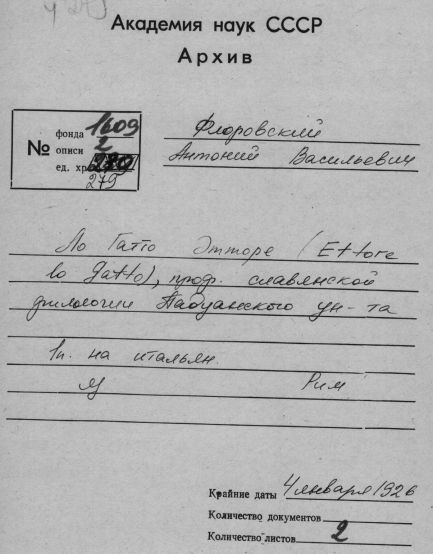 Академия наук СССР
Архив
№
фонда 1609
описи 2
ед. хр.
279
Флоровский
Антоний Васильевич
Ло Гатто Этторе (Ettore
Lo Gatto), проф. славянской
филологии Падуанского ун-та
1п. на итальян.
Я Рим
Крайние даты 4 января 1926
Количество документов
Количество листов 2